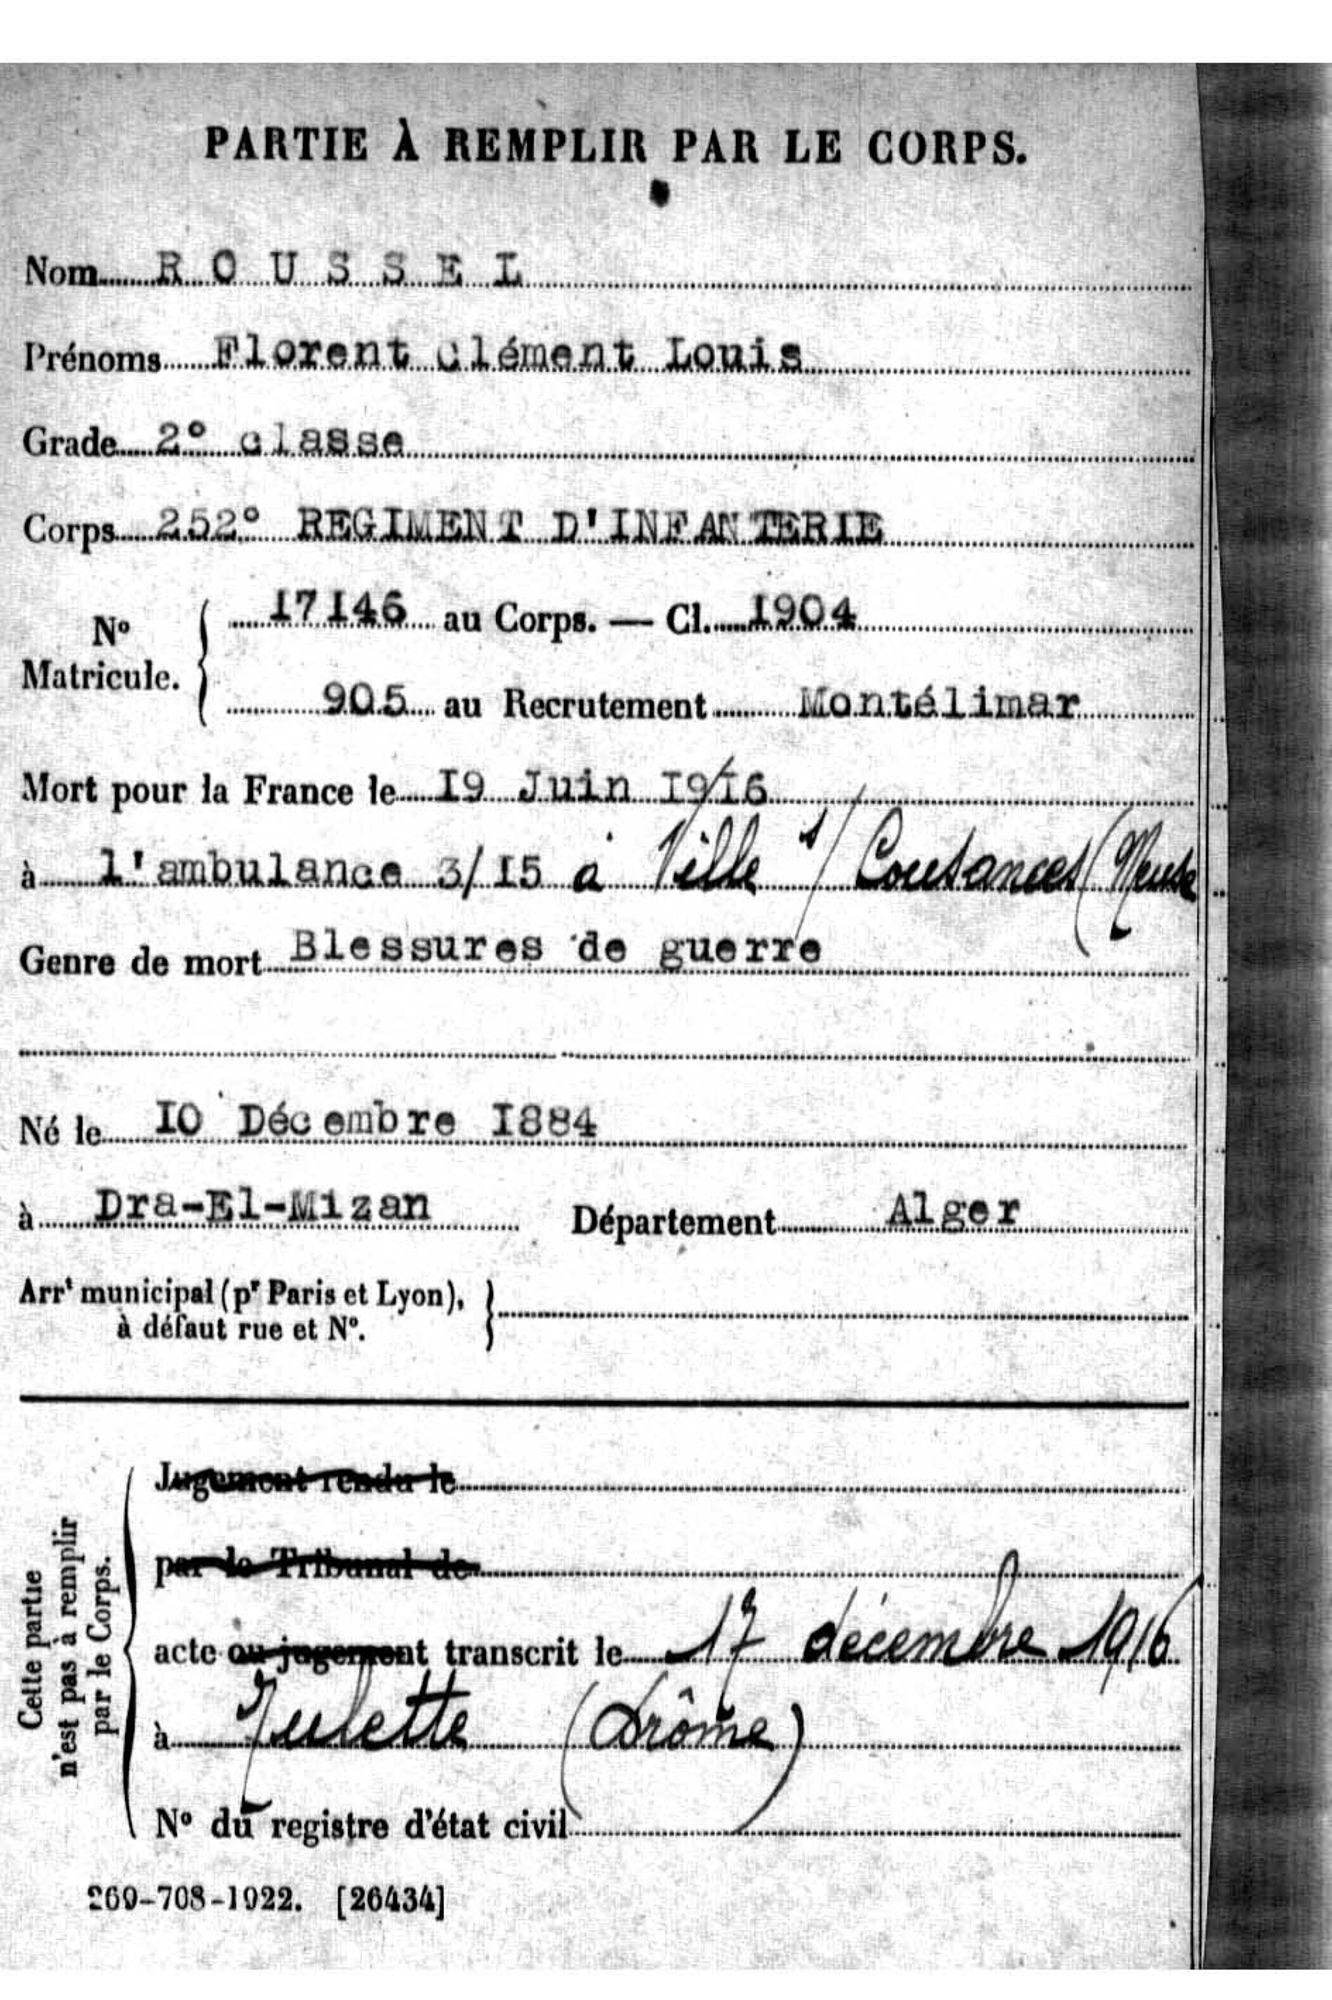 PARTIE À REMPLIR PAR LE CORPS.
Nom ROUSSEL
Prénoms Florent Clément Louis
Grade 2° classe
Corps 252° REGIMENT D'INFANTERIE
N° Matricule. 17146 au Corps. — Cl. 1904
905 au Recrutement Montélimar
Mort pour la France le 19 Juin 1916
à l'ambulance 3/15 à Ville s/ Cousances (Meuse
Genre de mort Blessures de guerre
Né le 10 Décembre 1884
à Dra-El-Mizan Département Alger
Arrt municipal (pr Paris et Lyon),
à défaut rue et N°.
Cette partie
n'est pas à remplir
par le Corps.
Jugement rendu le
par le Tribunal de
acte ou jugement transcrit le 17 décembre 1916
à (Drôme)
N° du registre d'état civil
269-708-1922. [26434]